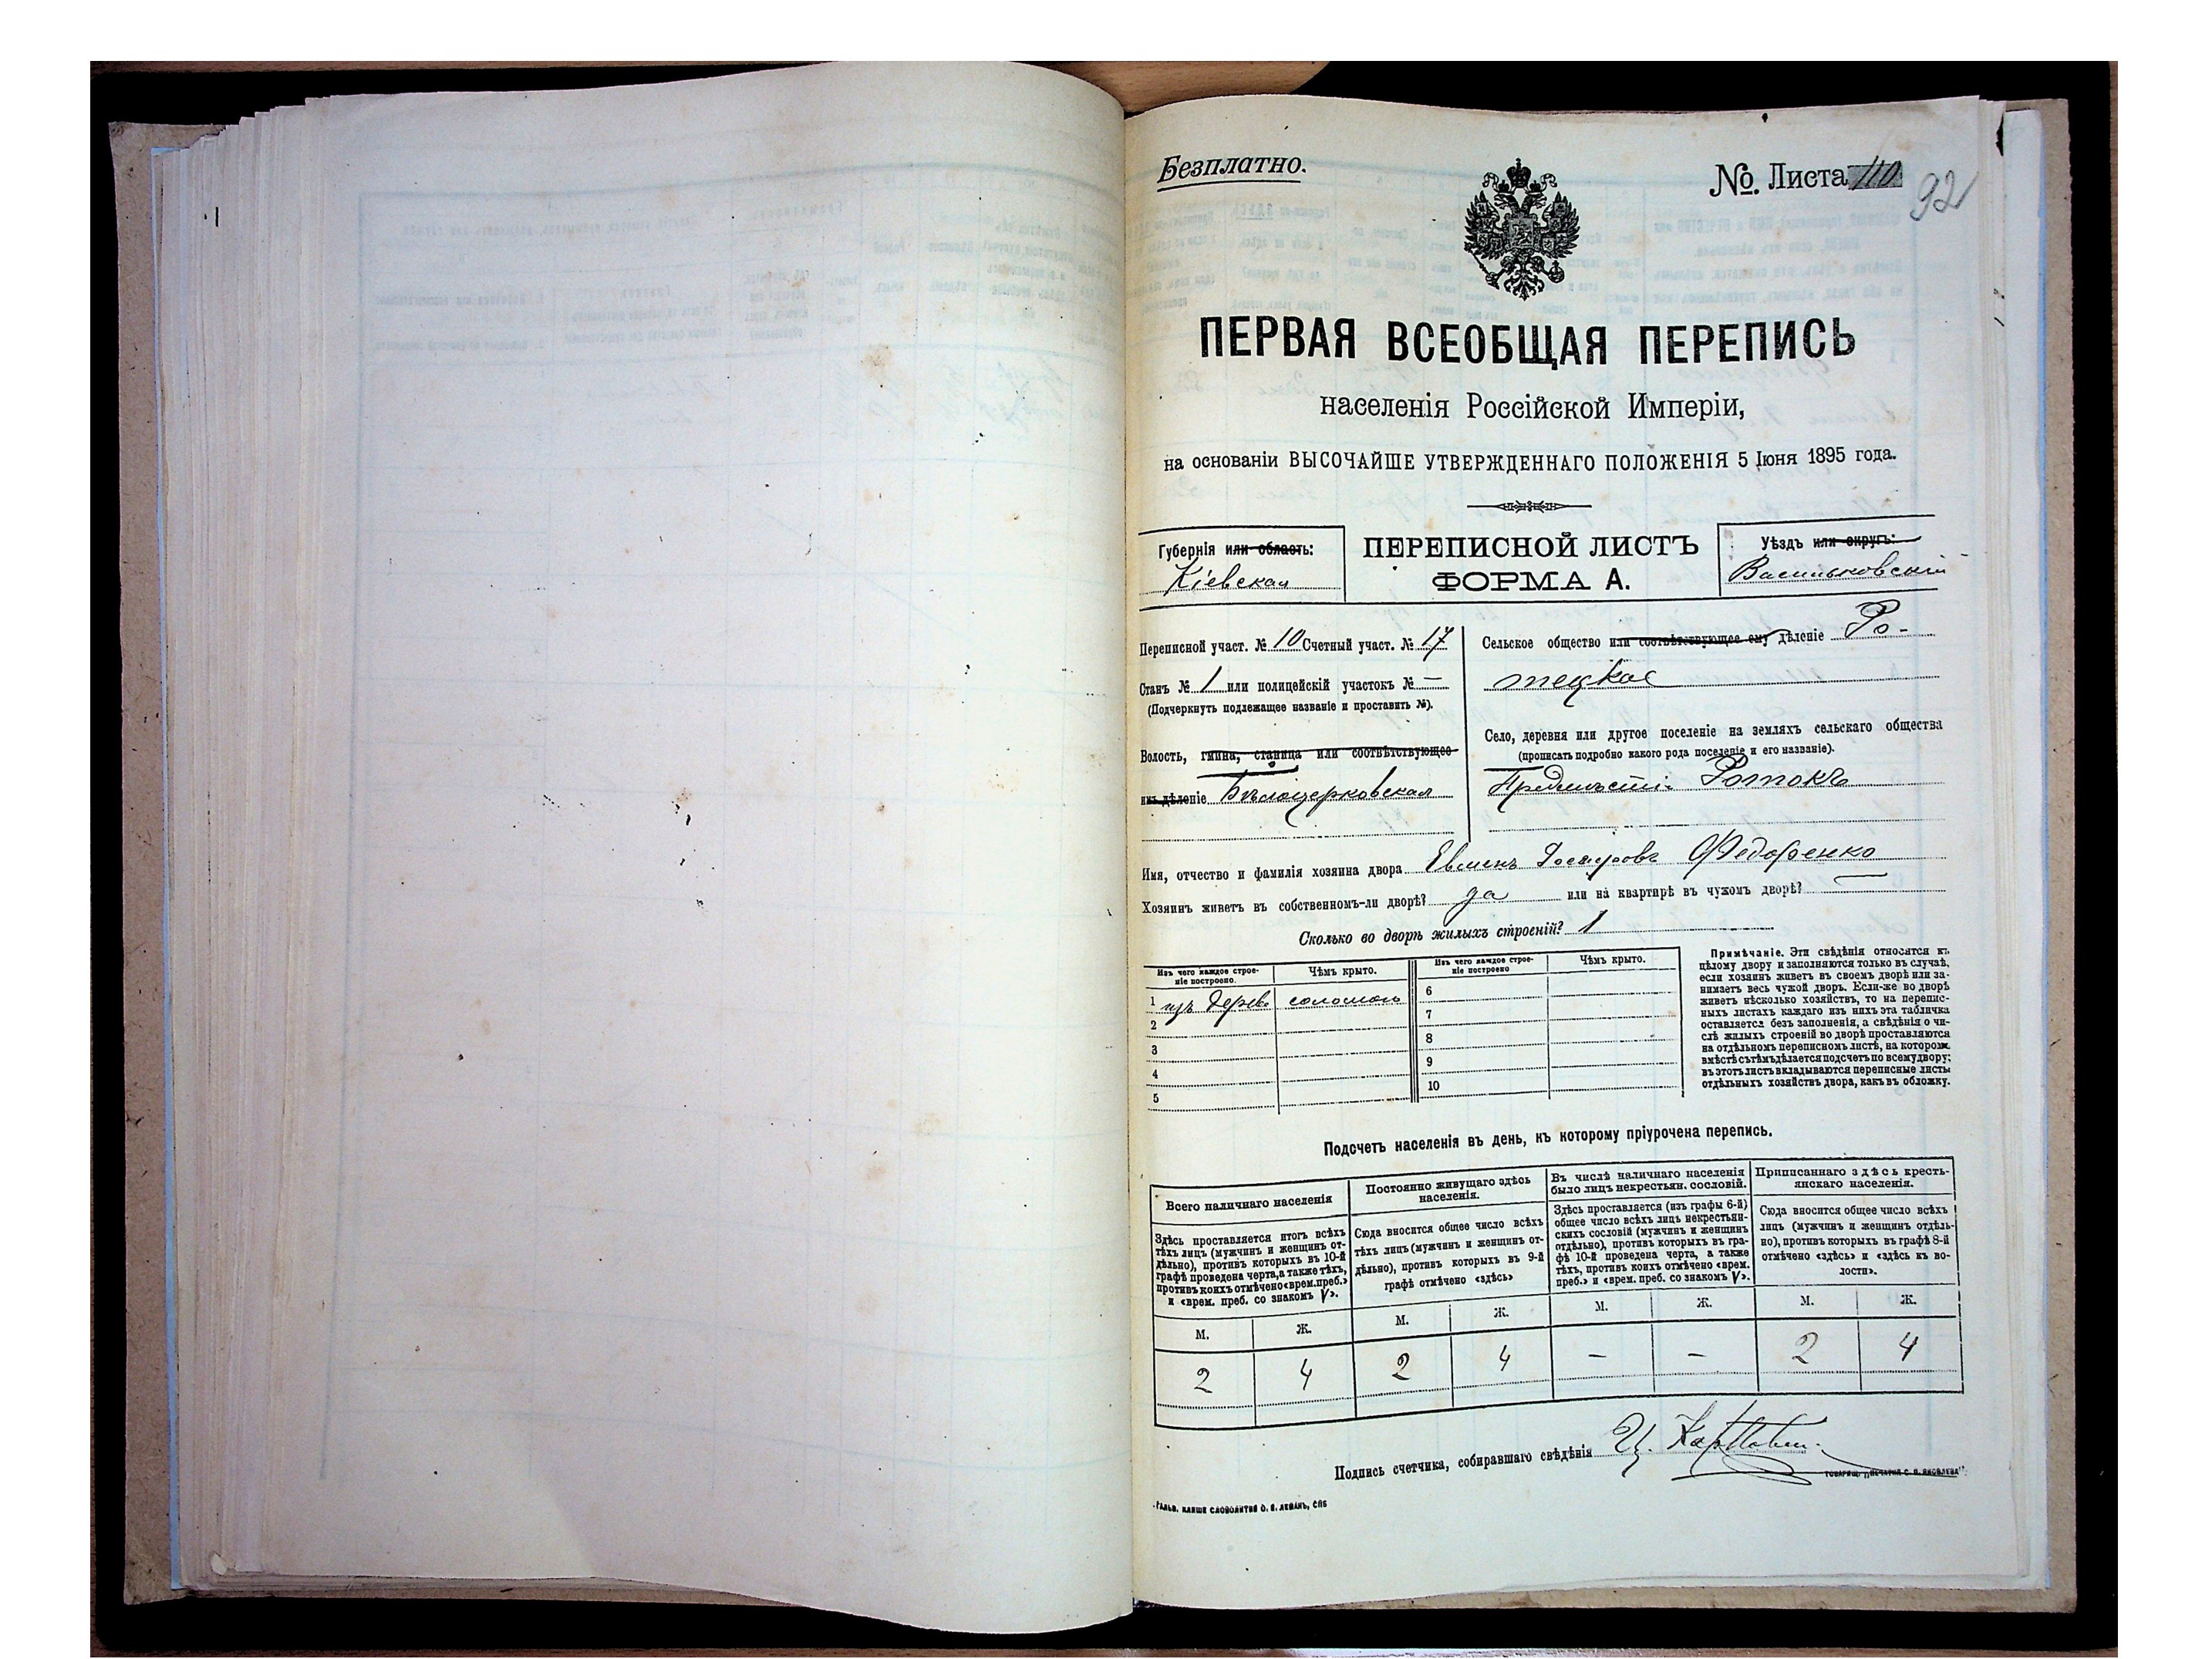 Безплатно.
№ Листа 110
92
ПЕРВАЯ ВСЕОБЩАЯ ПЕРЕПИСЬ
населенія Россійской Имперіи,
на основаніи ВЫСОЧАЙШЕ УТВЕРЖДЕННАГО ПОЛОЖЕНІЯ 5 Іюня 1895 года.
Губернія или область:
Кіевская
ПЕРЕПИСНОЙ ЛИСТЪ
ФОРМА А.
Уѣздъ или округъ:
Васильковскій
Переписной участ. № 10 Счетный участ. № 17
Станъ № 1 или полицейскій участокъ № —
(Подчеркнуть подлежащее названіе и проставить №).
Волость, гмина, станица или соотвѣтствующее
имъ дѣленіе Бѣлоцерковская
Сельское общество или соотвѣтствующее ему дѣленіе Ро-
токское
Село, деревня или другое поселеніе на земляхъ сельскаго общества
(прописать подробно какого рода поселеніе и его названіе).
Ротокъ
Имя, отчество и фамилія хозяина двора Евменъ Федоренко
Хозяинъ живетъ въ собственномъ-ли дворѣ? да или на квартирѣ въ чужомъ дворѣ? —
Сколько во дворѣ жилыхъ строеній? 1
Изъ чего каждое строе-
ніе построено.
Чѣмъ крыто.
Изъ чего каждое строе-
ніе построено
Чѣмъ крыто.
1 изъ дерева соломою
2
3
4
5
6
7
8
9
10
Примѣчаніе. Эти свѣдѣнія относятся къ
цѣлому двору и заполняются только въ случаѣ,
если хозяинъ живетъ въ своемъ дворѣ или за-
нимаетъ весь чужой дворъ. Если-же во дворѣ
живетъ нѣсколько хозяйствъ, то на перепис-
ныхъ листахъ каждаго изъ нихъ эта табличка
оставляется безъ заполненія, а свѣдѣнія о чи-
слѣ жилыхъ строеній во дворѣ проставляются
на отдѣльномъ переписномъ листѣ, на которомъ
вмѣстѣ съ тѣмъ дѣлается подсчетъ по всему двору;
въ этотъ листъ вкладываются переписные листы
отдѣльныхъ хозяйствъ двора, какъ въ обложку.
Подсчетъ населенія въ день, къ которому пріурочена перепись.
Всего наличнаго населенія
Здѣсь проставляется итогъ всѣхъ
тѣхъ лицъ (мужчинъ и женщинъ от-
дѣльно), противъ которыхъ въ 10-й
графѣ проведена черта, а также тѣхъ,
противъ коихъ отмѣчено «врем. преб.»
и «врем. преб. со знакомъ V».
Постоянно живущаго здѣсь
населенія.
Сюда вносится общее число всѣхъ
тѣхъ лицъ (мужчинъ и женщинъ от-
дѣльно), противъ которыхъ въ 9-й
графѣ отмѣчено «здѣсь»
Въ числѣ наличнаго населенія
было лицъ некрестьян. сословій.
Здѣсь проставляется (изъ графы 6-й)
общее число всѣхъ лицъ некрестьян-
скихъ сословій (мужчинъ и женщинъ
отдѣльно), противъ которыхъ въ гра-
фѣ 10-й проведена черта, а также
тѣхъ, противъ коихъ отмѣчено «врем.
преб.» и «врем. преб. со знакомъ V».
Приписаннаго здѣсь кресть-
янскаго населенія.
Сюда вносится общее число всѣхъ
лицъ (мужчинъ и женщинъ отдѣль-
но), противъ которыхъ въ графѣ 8-й
отмѣчено «здѣсь» и «здѣсь къ во-
лости».
М. Ж. М. Ж. М. Ж. М. Ж.
2 4 2 4 — — 2 4
Подпись счетчика, собиравшаго свѣдѣнія
ГАЛЬВ. КЛИШЕ СЛОВОЛИТНИ О. И. ЛЕМАНЪ, СПБ
ТОВАРИЩ. „ПЕЧАТНЯ С. П. ЯКОВЛЕВА".